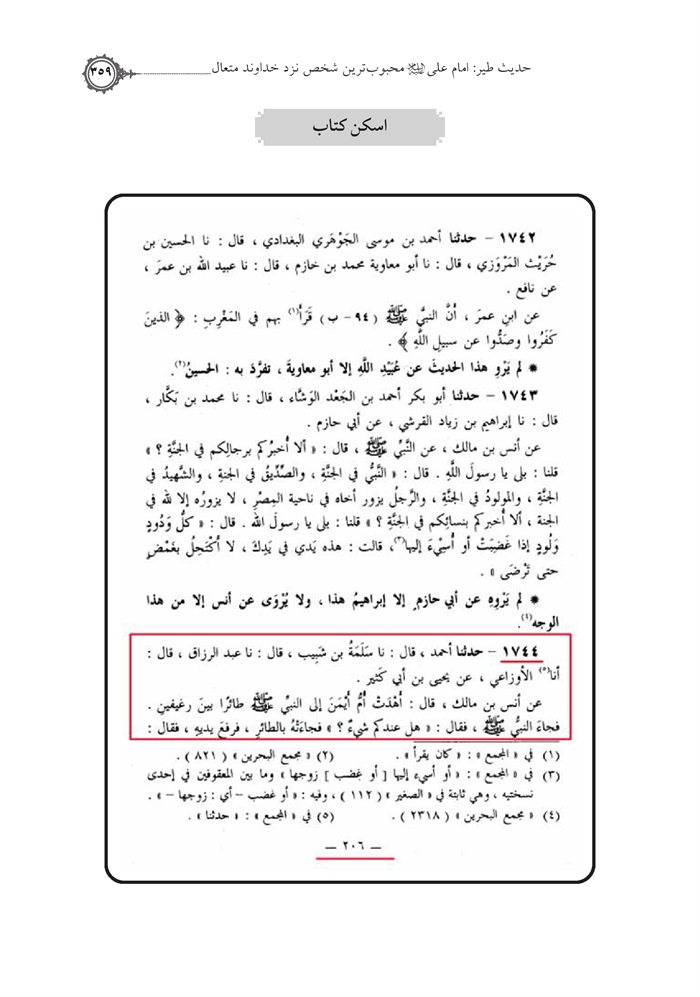 حدیث طیر: امام علی علیه السلام محبوب‌ترین شخص نزد خداوند متعال
٣٥٩
اسکن کتاب
١٧٤٢ – حدثنا أحمد بن موسى الجَوْهَري البغدادي ، قال : نا الحسين بن
حُرَيْث المَرْوَزي ، قال : نا أبو معاوية محمد بن خازم ، قال : نا عبيد الله بن عمرَ ،
عن نافع .
عن ابنِ عمرَ ، أَنَّ النبيَّ ﷺ ( ٩٤ – ب ) قَرَأَ(١) بهم في المَغْرِبِ : ﴿ الذينَ
كَفَرُوا وصَدُّوا عن سبيلِ اللَّهِ ﴾ .
* لم يَرْوِ هذا الحديثَ عن عُبَيْدِ اللَّهِ إلا أبو معاويةَ ، تفرَّدَ به : الحسينُ(٢).
١٧٤٣ – حدثنا أبو بكر أحمد بن الجَعْد الوَشَّاء ، قال : نا محمد بن بَكَّار ،
قال : نا إبراهيم بن زياد القرشي ، عن أبي حازم .
عن أنس بن مالك ، عن النَّبِّي ﷺ ، قال : « ألا أُخبِرُكم برجالِكم في الجنَّةِ ؟ »
قلنا : بلى يا رسولَ اللَّهِ . قال : « النَّبيُّ في الجنَّةِ ، والصِّدِّيقُ في الجنةِ ، والشَّهيدُ في
الجنَّةِ ، والمولودُ في الجنَّةِ ، والرَّجلُ يزور أخاه في ناحية المِصْرِ ، لا يزورُه إلا لله في
الجنة ، ألا أُخبركم بنسائِكم في الجنَّةِ ؟ » قلنا : بلى يا رسول الله . قال : « كلُّ وَدُودٍ
وَلُودٍ إذا غَضِبَتْ أو أُسِيْءَ إليها(٣)، قالت : هذه يَدي في يَدِكَ ، لا أَكْتَحِلُ بغَمْضٍ
حتى تَرْضَى » .
* لم يَرْوِهِ عن أبي حازمٍ إلا إبراهيمُ هذا ، ولا يُرْوَى عن أنس إلا من هذا
الوجه(٤).
١٧٤٤ – حدثنا أحمد ، قال : نا سَلَمَةُ بن شَبِيب ، قال : نا عبد الرزاق ، قال :
أنا(٥) الأوزاعي ، عن يحيى بن أبي كَثير .
عن أنس بن مالك ، قال : أَهْدَتْ أُمُّ أَيْمَنَ إلى النبيِّ ﷺ طائرًا بينَ رغيفينِ .
فجاءَ النبيُّ ﷺ ، فقال : « هل عندكم شيءٌ ؟ » فجاءَتْهُ بالطائرِ ، فرفعَ يديهِ ، فقال :
(١) في « المجمع » : « كان يقرأ » . (٢) « مجمع البحرين » ( ٨٢١ ) .
(٣) في « المجمع » : « أو أسيء إليها [ أو غضب ] زوجها » وما بين المعقوفين في إحدى
نسختيه ، وهي ثابتة في « الصغير » ( ١١٢ ) ، وفيه : « أو غضب – أي : زوجها – » .
(٤) « مجمع البحرين » ( ٢٣١٨ ) . (٥) في « المجمع » : « حدثنا » .
— ٢٠٦ —